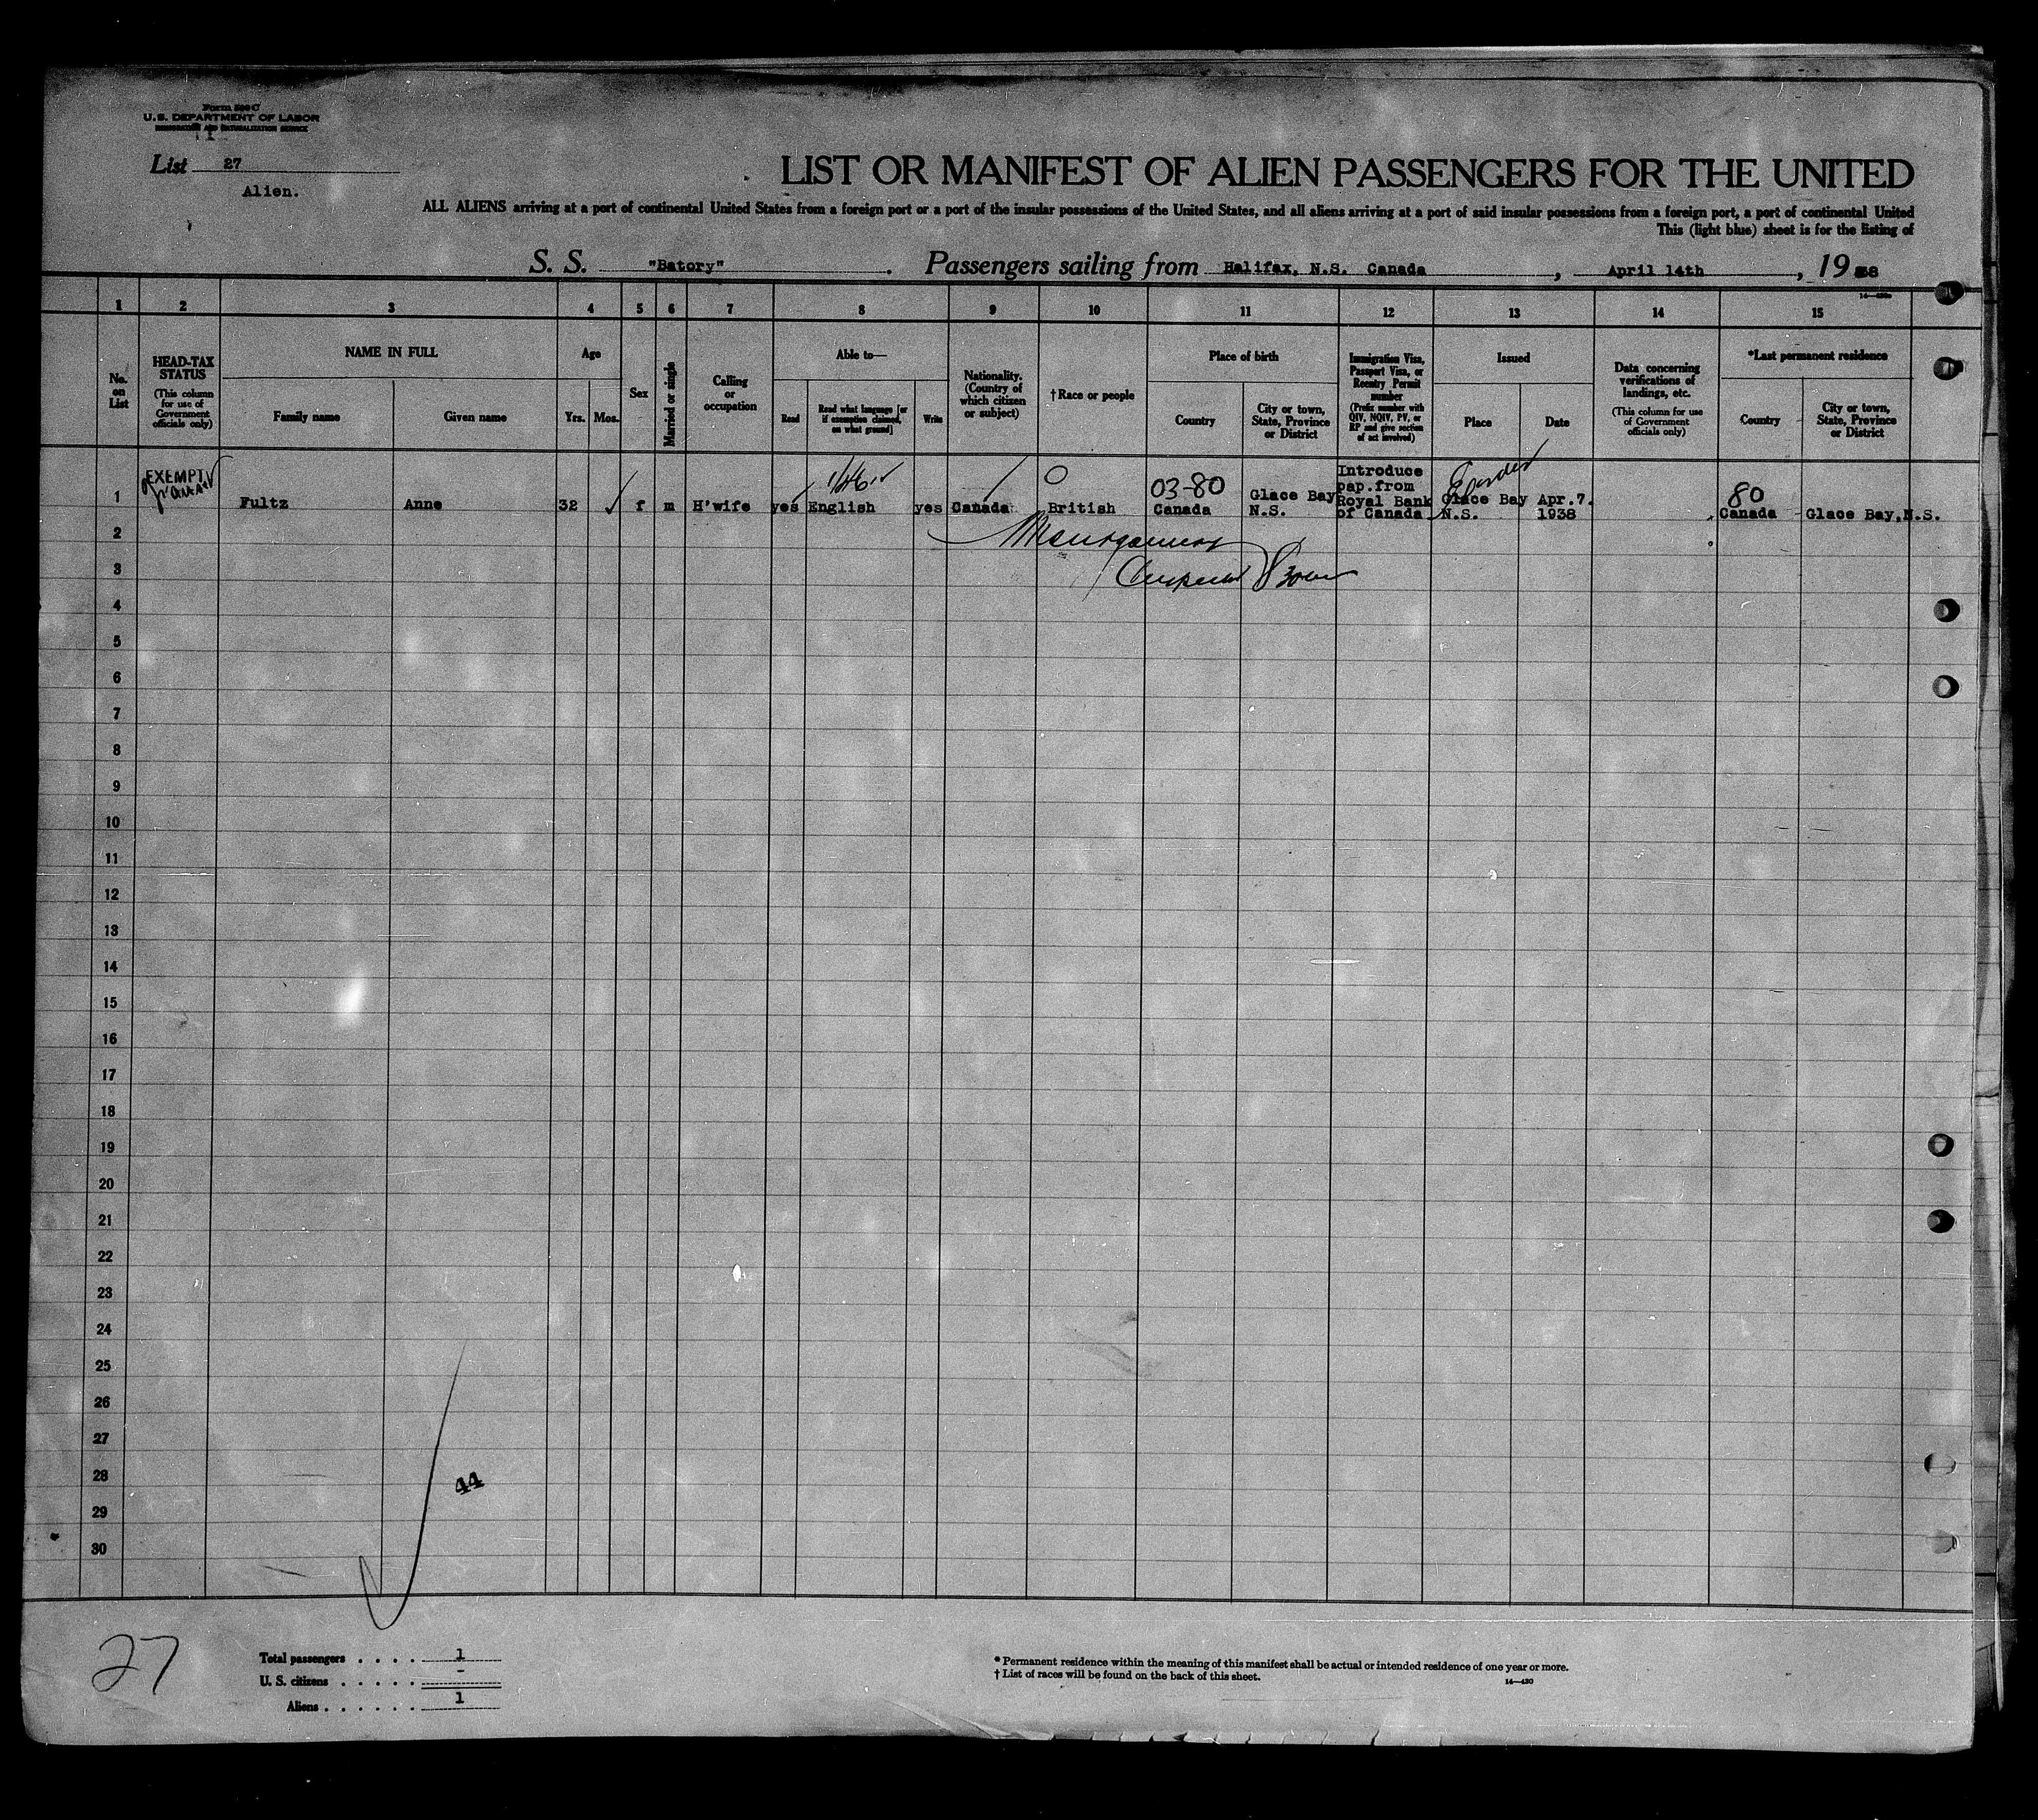 Form 500 C
U. S. DEPARTMENT OF LABOR
IMMIGRATION AND NATURALIZATION SERVICE
List 27
Alien.
LIST OR MANIFEST OF ALIEN PASSENGERS FOR THE UNITED
ALL ALIENS arriving at a port of continental United States from a foreign port or a port of the insular possessions of the United States, and all aliens arriving at a port of said insular possessions from a foreign port, a port of continental United
This (light blue) sheet is for the listing of
S. S. "Batory" . Passengers sailing from Halifax, N.S. Canada , April 14th , 1938
1 2 3 4 5 6 7 8 9 10 11 12 13 14 15
No. on List
HEAD-TAX STATUS
(This column for use of Government officials only)
NAME IN FULL
Family name
Given name
Age
Yrs.
Mos.
Sex
Married or single
Calling or occupation
Able to—
Read
Read what language [or if exemption claimed, on what ground]
Write
Nationality. (Country of which citizen or subject)
†Race or people
Place of birth
Country
City or town, State, Province or District
Immigration Visa, Passport Visa, or Reentry Permit number
(Prefix number with QIV, NQIV, PV, or RP and give section of act involved)
Issued
Place
Date
Data concerning verifications of landings, etc.
(This column for use of Government officials only)
*Last permanent residence
Country
City or town, State, Province or District
EXEMPT
1 Fultz Anne 32 f m H'wife yes English yes Canada British
03-80
Canada
Glace Bay
N.S.
Introduce
pap.from
Royal Bank
of Canada
Glace Bay
N.S.
Apr.7.
1938
80
Canada
Glace Bay,N.S.
2
3
4
5
6
7
8
9
10
11
12
13
14
15
16
17
18
19
20
21
22
23
24
25
26
27
28
29
30
44
27
Total passengers . . . . 1
U. S. citizens . . . . . -
Aliens . . . . . . 1
* Permanent residence within the meaning of this manifest shall be actual or intended residence of one year or more.
† List of races will be found on the back of this sheet.
14—430